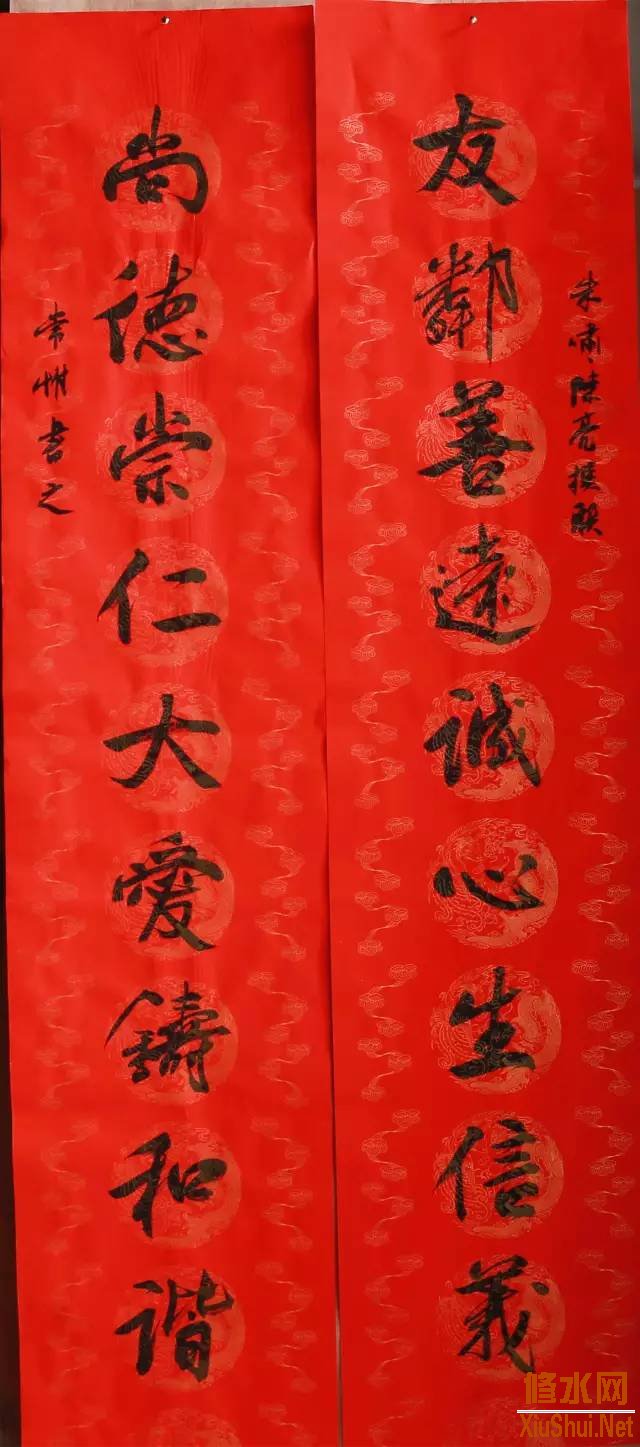 友鄰善遠誠心生信義
尚德崇仁大愛鑄和諧
陳亮撰联
常州書之
修水网
XiuShui.Net